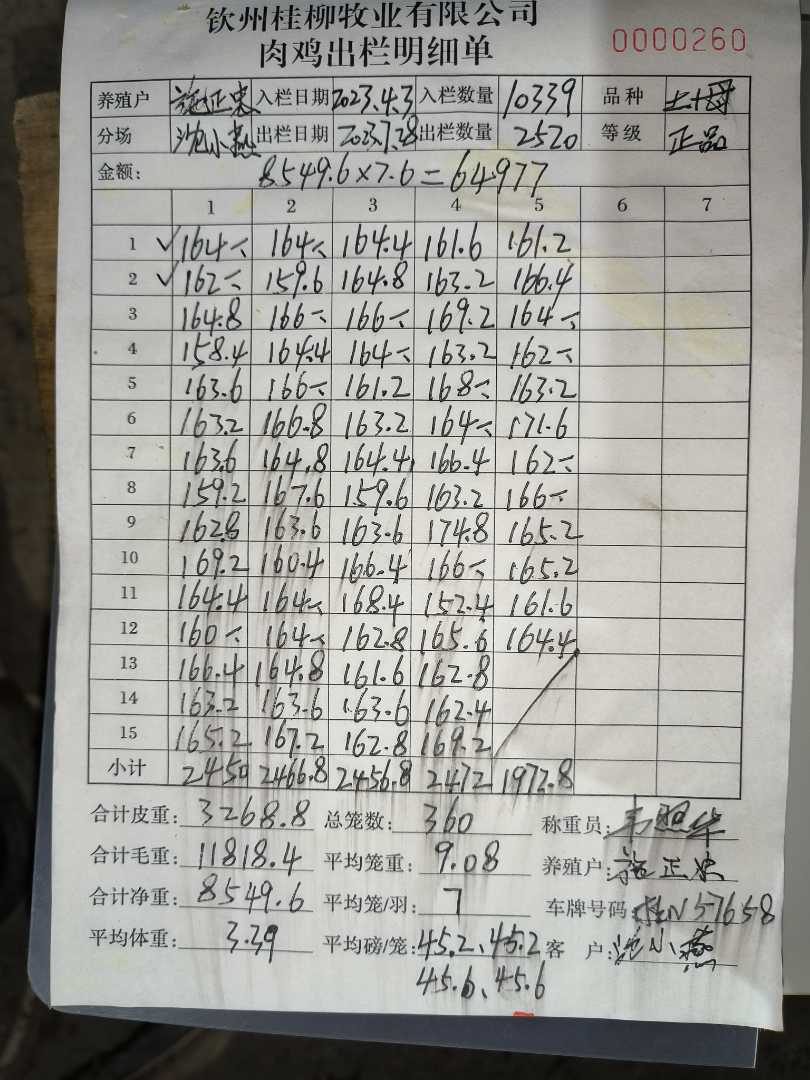 钦州桂柳牧业有限公司
肉鸡出栏明细单 0000260
养殖户 施正忠 入栏日期 2023.4.3 入栏数量 10339 品种 土十母
分场 沈小燕 出栏日期 2023.7.28 出栏数量 2520 等级 正品
金额: 8549.6×7.6=64977
1 2 3 4 5 6 7
1 √164 164 164.4 161.6 161.2
2 √162 159.6 164.8 163.2 166.4
3 164.8 166 166 169.2 164
4 158.4 164.4 164 163.2 162
5 163.6 166 161.2 168 163.2
6 163.2 166.8 163.2 164 171.6
7 163.6 164.8 164.4 166.4 162
8 159.2 167.6 159.6 163.2 166
9 162.8 163.6 163.6 174.8 165.2
10 169.2 160.4 166.4 166 165.2
11 164.4 164 168.4 152.4 161.6
12 160 164 162.8 165.6 164.4
13 166.4 164.8 161.6 162.8
14 163.2 163.6 163.6 162.4
15 165.2 167.2 162.8 169.2
小计 2450 2466.8 2456.8 2472 1972.8
合计皮重: 3268.8 总笼数: 360 称重员: 韦照华
合计毛重: 11818.4 平均笼重: 9.08 养殖户: 施正忠
合计净重: 8549.6 平均笼/羽: 7 车牌号码: N57658
平均体重: 3.39 平均磅/笼: 45.2、45.2 客 户: 沈小燕
45.6、45.6